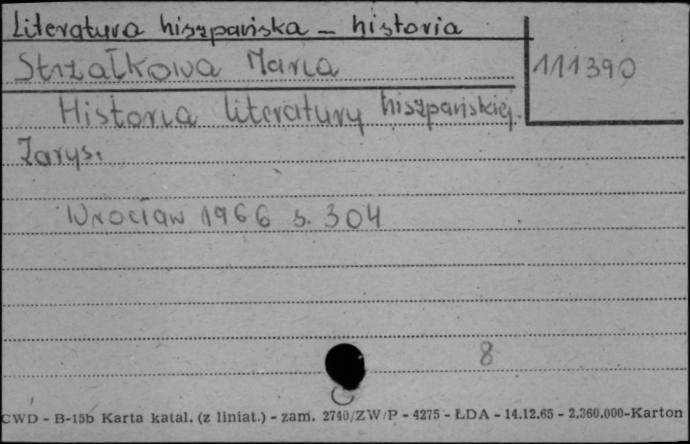 Literatura hiszpańska - historia
Strzałkowa Maria
111390
Historia literatury hiszpańskiej.
Zarys.
Wrocław 1966 s. 304
8
CWD - B-15b Karta katal. (z liniat.) - zam. 2740/ZW/P - 4275 - ŁDA - 14.12.65 - 2.360.000-Karton